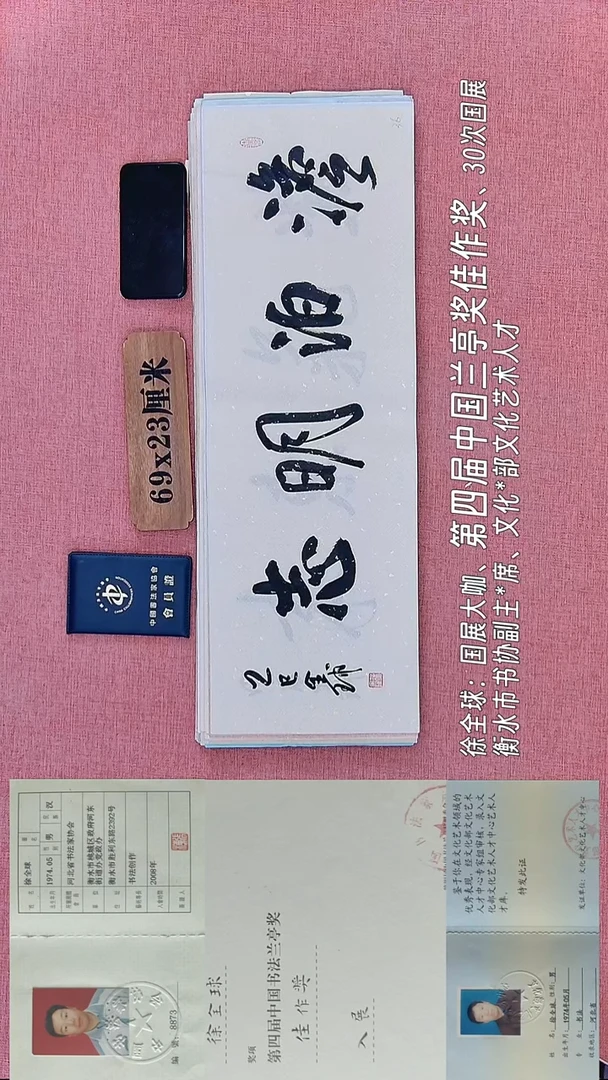 澹泊明志
乙巳
全球
69x23厘米
中國書法家協會
會員證
徐全球：国展大咖、第四届中国兰亭奖佳作奖、30次国展
衡水市书协副主*席、文化*部文化艺术人才
徐全球 男 汉
1974.05
河北省书法家协会
衡水市桃城区政府河东
街道办党政办
衡水市胜利东路2392号
书法创作
2008年
编号: 8873
徐全球
奖项
第四届中国书法兰亭奖
佳作奖
入展
鉴于你在文化艺术领域的
优秀表现，经文化部文化艺术
人才中心专家组审核，录入文
化部文化艺术人才中心艺术人
才库。
特发此证
发证单位：文化部文化艺术人才中心
姓名：徐全球 性别：男
出生年月：1974年05月
专业：书法